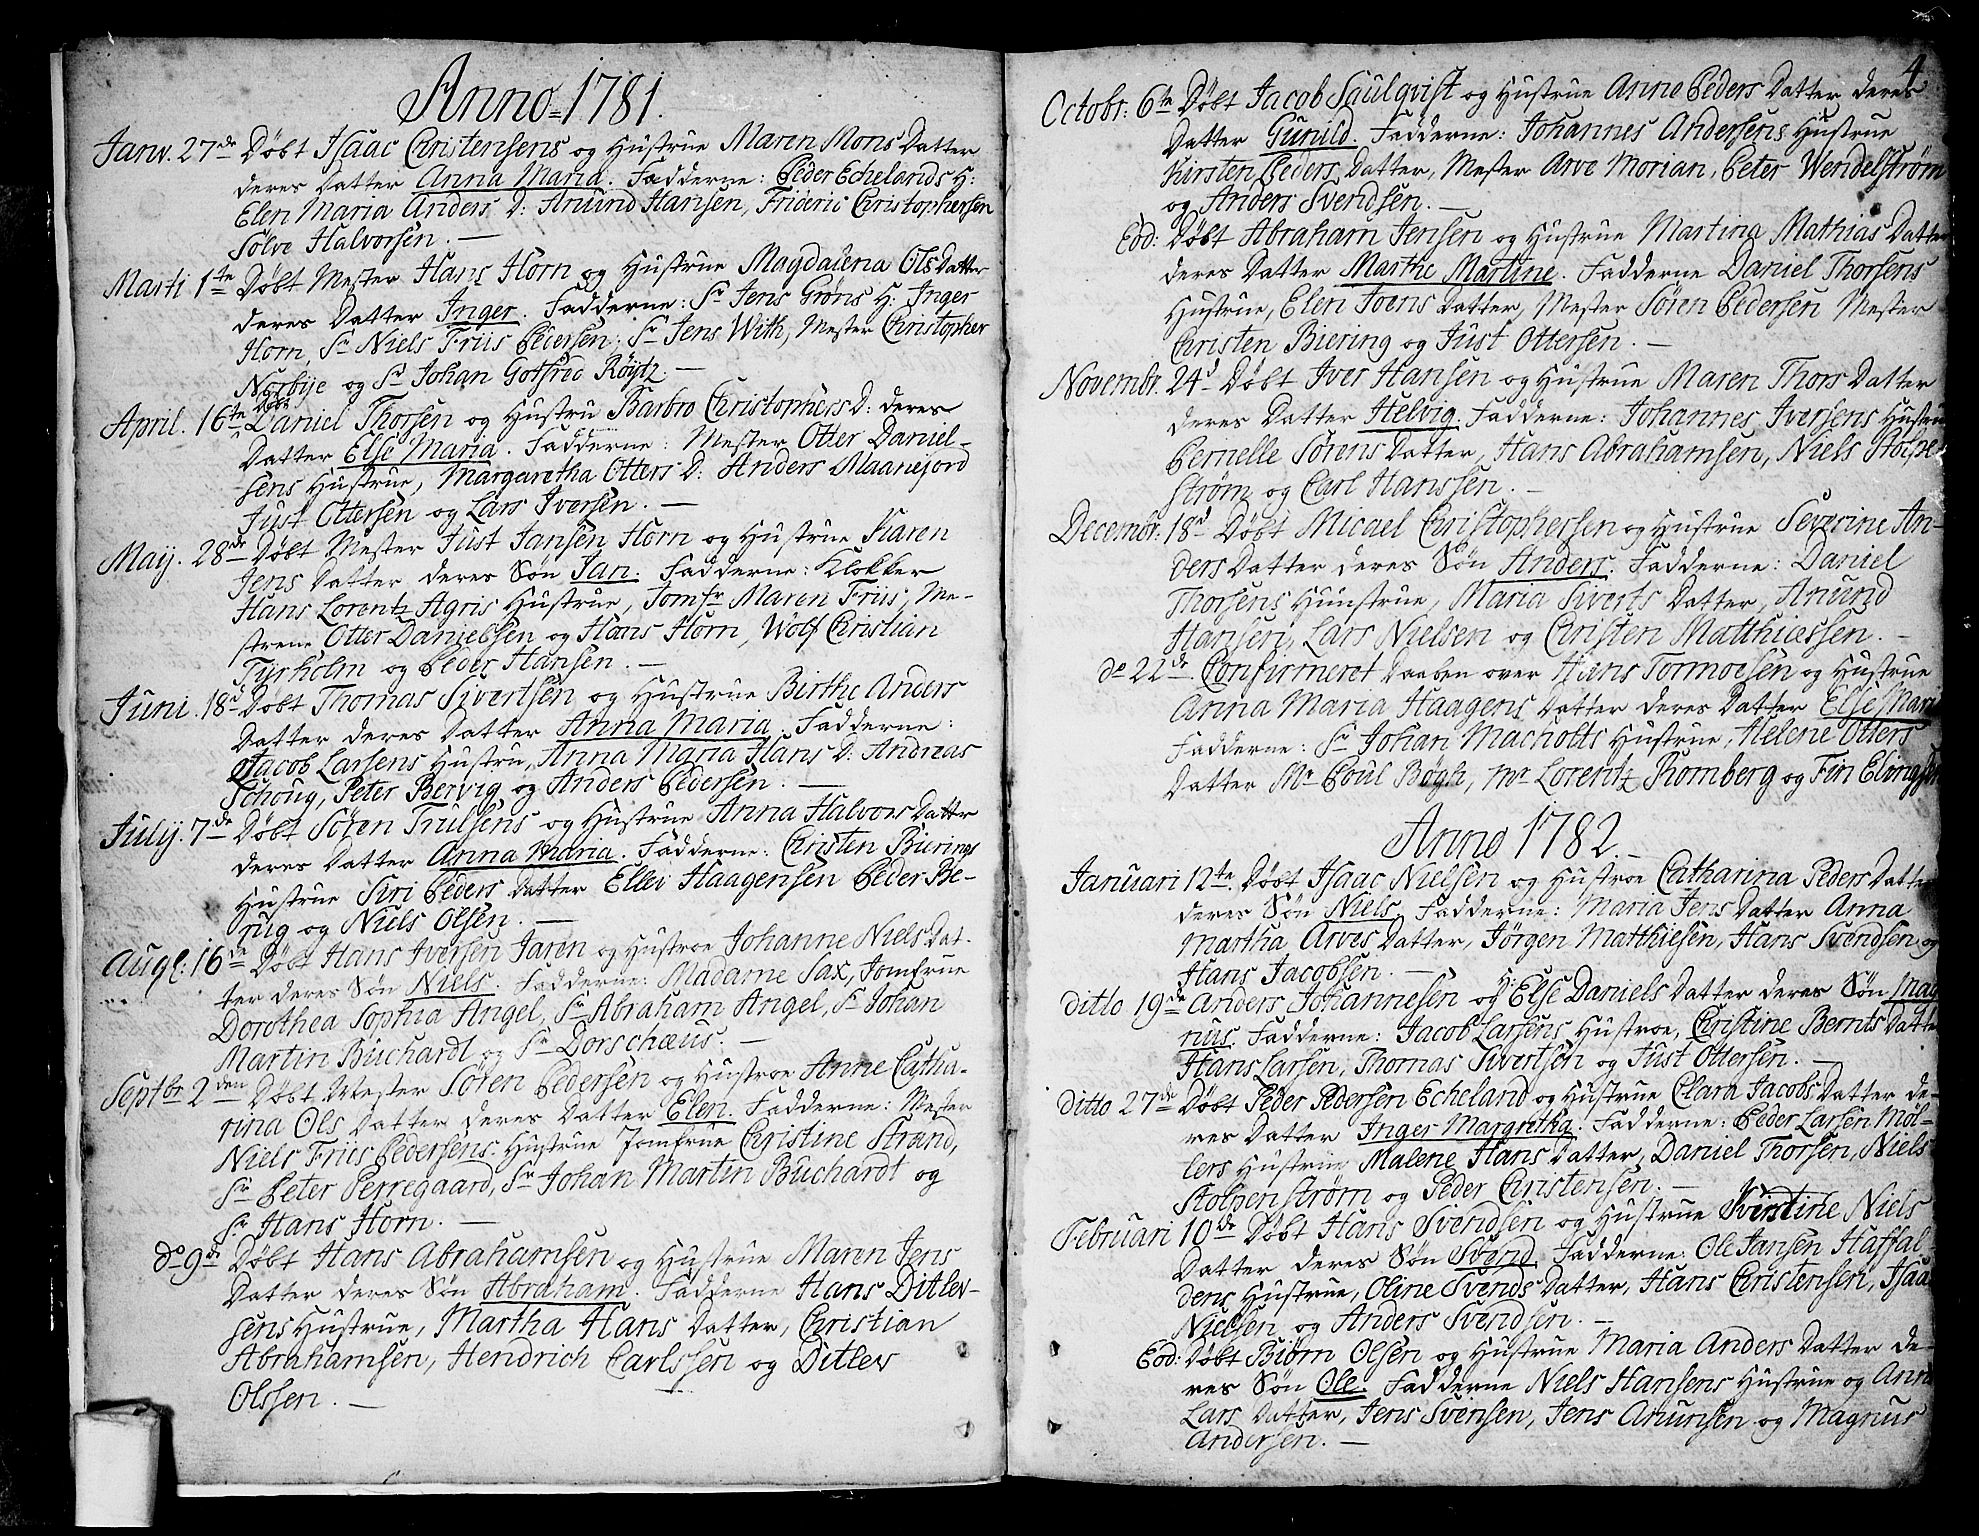 Anno 1781.
Janv. 27de Döbt Isaac Christensens og Hustrue Maren Mons Datter
deres Datter Anna Maria. Fadderne: Peder Echelands H:
Elen Maria Anders D: Anund Hansen, Frideric Christophersen
Sölve Halvorsen. —
Marti 1te Döbt Mester Hans Horn og Hustrue Magdalena Ols Datter
deres Datter Inger. Fadderne: Sr Jens Gröns H: Inger
Horn, Sr Niels Friis Pedersen, Sr Jens With, Mester Christopher
Norbÿe og Sr Johan Gotfred Röÿtz. —
April. 16te Döbt Daniel Thorsen og Hustru Barbro Christophers D: deres
Datter Else Maria. Fadderne: Mester Otter Daniel-
sens Hustrue, Margaretha Otters D: Anders Maanejord
Just Ottersen og Lars Iversen. —
Maij. 28de Döbt Mester Just Jansen Horn og Hustrue Karen
Jens Datter deres Sön Jan. Fadderne: Klokker
Hans Lorentz Agris Hustrue, Jomfr Maren Friis, Me-
strene Otter Danielssen og Hans Horn, Wolf Christian
Tyrholm og Peder Hansen. —
Juni. 18d Döbt Thomas Sivertsen og Hustrue Birthe Anders
Datter deres Datter Anna Maria. Fadderne:
Jacob Larsens Hustru, Anna Maria Hans D: Andreas
Schoug, Peter Bervig og Anders Pedersen. —
Julij. 7de Döbt Sören Trulsens og Hustrue Anna Halvors Datter
deres Datter Anna Maria. Fadderne: Christen Bierings
Hustrue Siri Peders Datter Ellev Haagensen Peder Be-
rug og Niels Olsen. —
Augl: 16de Döbt Hans Iversen Jaren og Hustroe Johanne Niels Dat-
ter deres Sön Niels. Fadderne: Madame Sax, Jomfrue
Dorothea Sophia Angel, Sr Abraham Angel, Sr Johan
Martin Buchardt og Sr Dorschæus. —
Septbr 2den Döbt Mester Sören Pedersen og Hustroe Anne Catha-
rina Ols Datter deres Datter Elen. Fadderne: Mester
Niels Friis Pedersens Hustrue Jomfrue Christine Strand,
Sr Peter Perregaard, Sr Johan Martin Buchardt og
Sr. Hans Horn. —
do 9de Döbt Hans Abrahamsen og Hustrue Maren Jens
Datter deres Sön Abraham. Fadderne Hans Ditlev-
sens Hustrue, Martha Hans Datter, Christian
Abrahamsen, Hendrich Carlssen og Ditlev
Olssen. —
4
Octobr: 6te Döbt Jacob Saulqvist og Hustrue Anne Peders Datter deres
Datter Gunild. Fadderne: Johannes Andersens Hustrue
Kirsten Peders Datter, Mester Arve Morian, Peter Wendelström
og Anders Svendsen. —
Eod: Döbt Abraham Jensen og Hustrue Martina Mathias Datter
deres Datter Marthe Martine. Fadderne Daniel Thorsens
Hustrue, Elen Joens Datter, Mester Sören Pedersen Mester
Christen Biering og Just Ottersen. —
Novembr. 24d Döbt Iver Hansen og Hustrue Maren Thors Datter
deres Datter Helvig. Fadderne: Johannes Iversens Hustrue
Pernelle Sörens Datter, Hans Abrahamsen, Niels Stolpe-
ström og Carl Hanssen. —
Decembr: 18d Döbt Micael Christophersen og Hustrue Severine An-
ders Datter deres Sön Anders. Fadderne: Daniel
Thorsens Huustrue, Maria Siverts Datter, Anund
Hansen, Lars Nielsen og Christen Matthiessen. —
do 22de. Confirmeret Daaben over Hans Tormoesen og Hustrue
Anna Maria Haagens Datter deres Datter Else Mari
Fadderne: Sr Johan Macholts Hustrue, Helene Otters
Datter Mr Poul Bögh, Mr Lorentz Romberg og Fin Elings
Anno 1782
Januari 12te. Döbt Isaac Nielsen og Hustroe Catharina Peders Datter
deres Sön Niels. Fadderne: Maria Jens Datter Anna
Martha Arves Datter, Jörgen Matthiesen, Hans Svendsen og
Hans Jacobsen. —
ditto 19de Anders Johannesen og H: Else Daniels Datter deres Sön Mag
nus. Fadderne: Jacob Larsens Hustroe, Christine Bernts Datter
Hans Larsen, Thomas Sivertsen og Just Ottersen. —
ditto 27de Döbt Peder Pedersen Echeland og Hustrue Clara Jacobs Datter de-
res Datter Inger Margretha. Fadderne: Peder Larsen Möl-
lers Hustrue Malene Hans Datter, Daniel Thorsen, Niels
Stolpenström og Peder Christensen. —
Februari 10de Döbt Hans Svendsen og Hustrue Kirstine Niels
Datter deres Sön Svend. Fadderne: Ole Jansen Haffal-
dens Hustrue, Oline Svends Datter, Hans Christensen, Isaac
Nielsen og Anders Svendsen. —
Eod: Döbt Biörn Olsen og Hustrue Maria Anders Datter de-
res Sön Ole. Fadderne Niels Hansens Hustrue og Anne
Lars Datter, Jens Svensen, Jens Anunsen og Magnus
Andersen. —